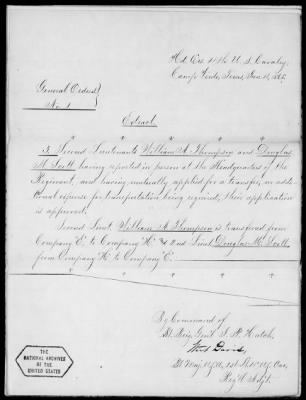 Hd. Qrs. 4th U.S. Cavalry,
Camp Texas,
General Orders
No. 1
Extract
3. Second Lieutenants William A. Thompson and Douglas
M. Scott having reported in person at the Headquarters of the
Regiment, and having mutually applied for a transfer, no addi-
tional expense for transportation being required, their application
is approved.
Second Lieut. William A. Thompson is transferred from
Company E. to Company H. and 2nd Lieut. Douglas M. Scott
from Company H. to Company E.
By Command of
Bt. Brig. Genl. J. P. Hatch.
Bt. Maj. U.S.A., 1st Lt. 4th U.S. Cav.
Reg'l Adjt.
THE
NATIONAL ARCHIVES
OF THE
UNITED STATES